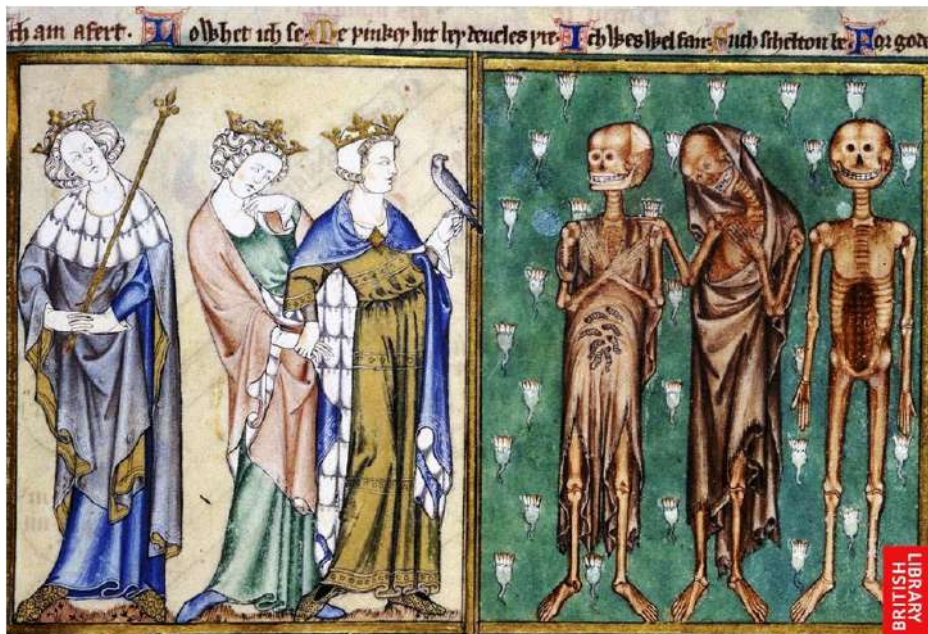 ch am afert. Lo whet ich se. Me þinkeþ hit bey deueles þre. Ich wes wel fair. Such scheltou be. For gode
BRITISH
LIBRARY